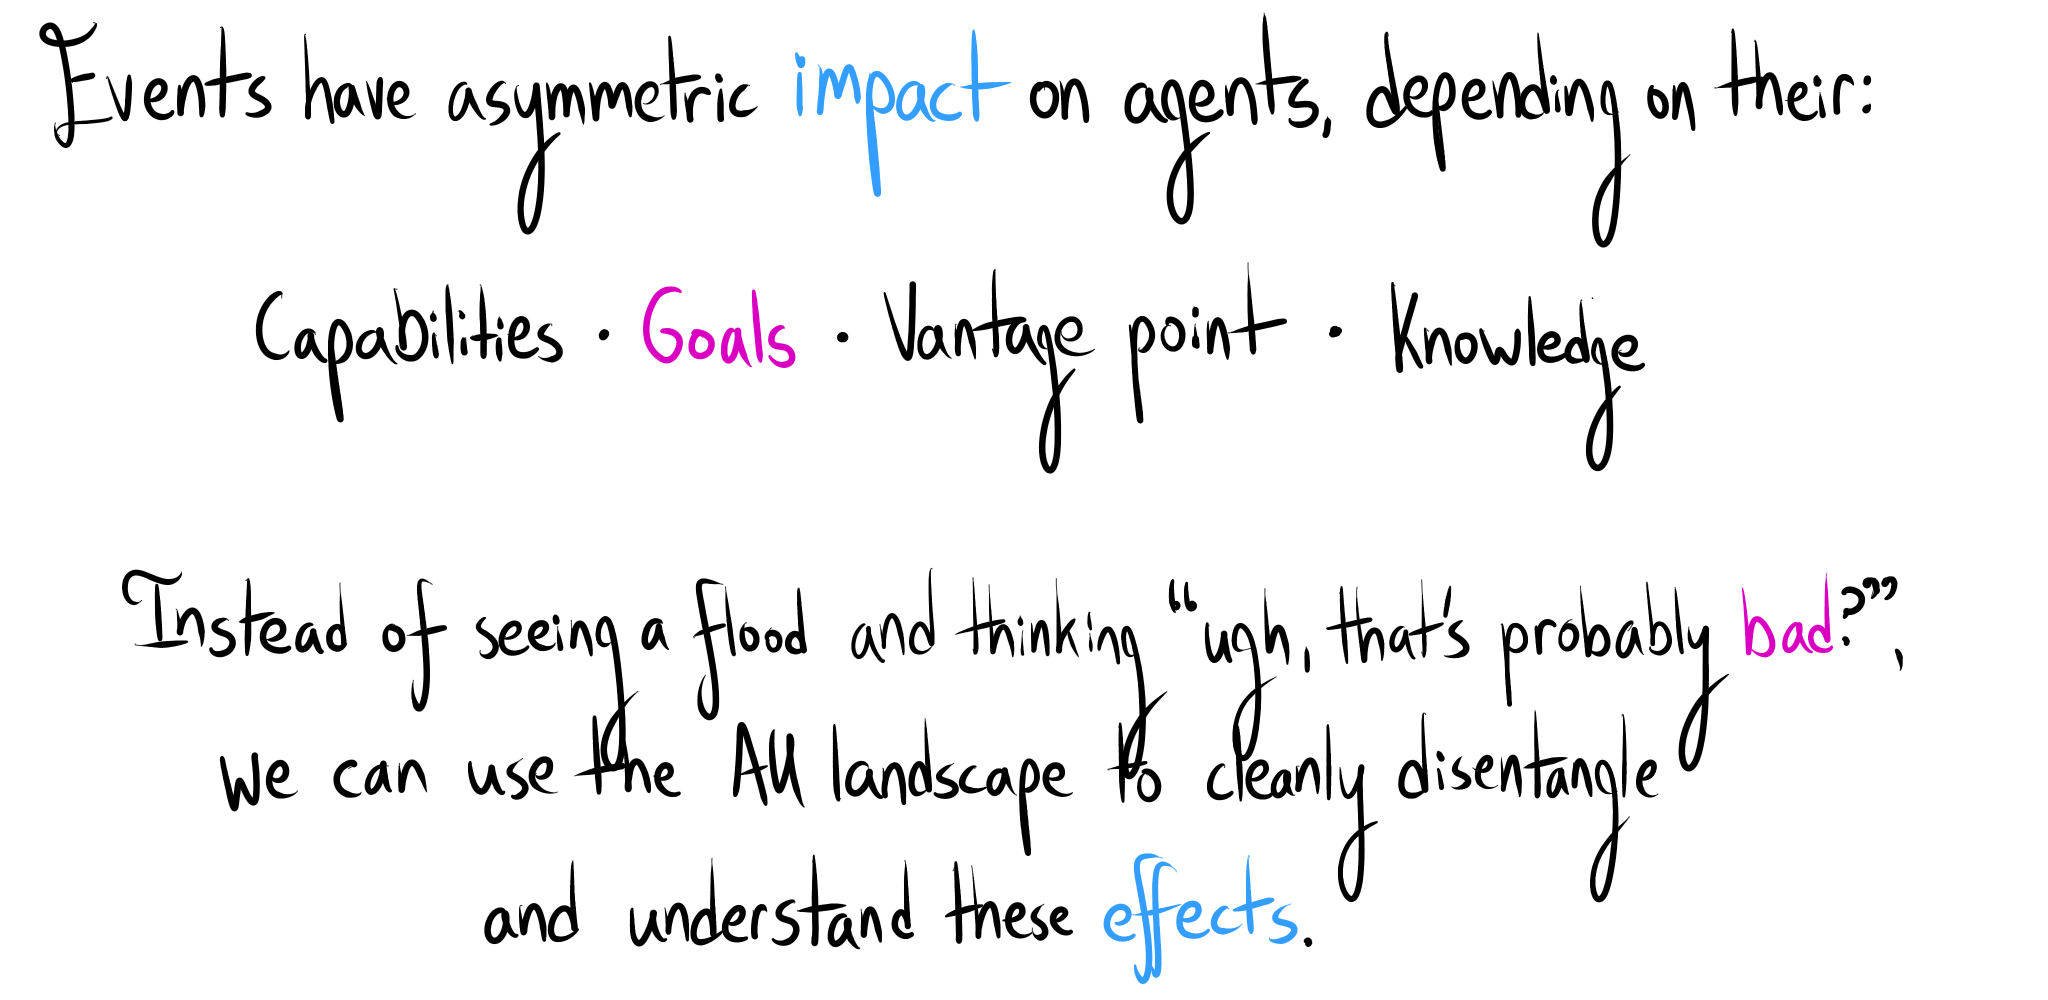 Events have asymmetric impact on agents, depending on their:
Capabilities · Goals · Vantage point · Knowledge
Instead of seeing a flood and thinking “ugh, that's probably bad?”,
we can use the AU landscape to cleanly disentangle
and understand these effects.